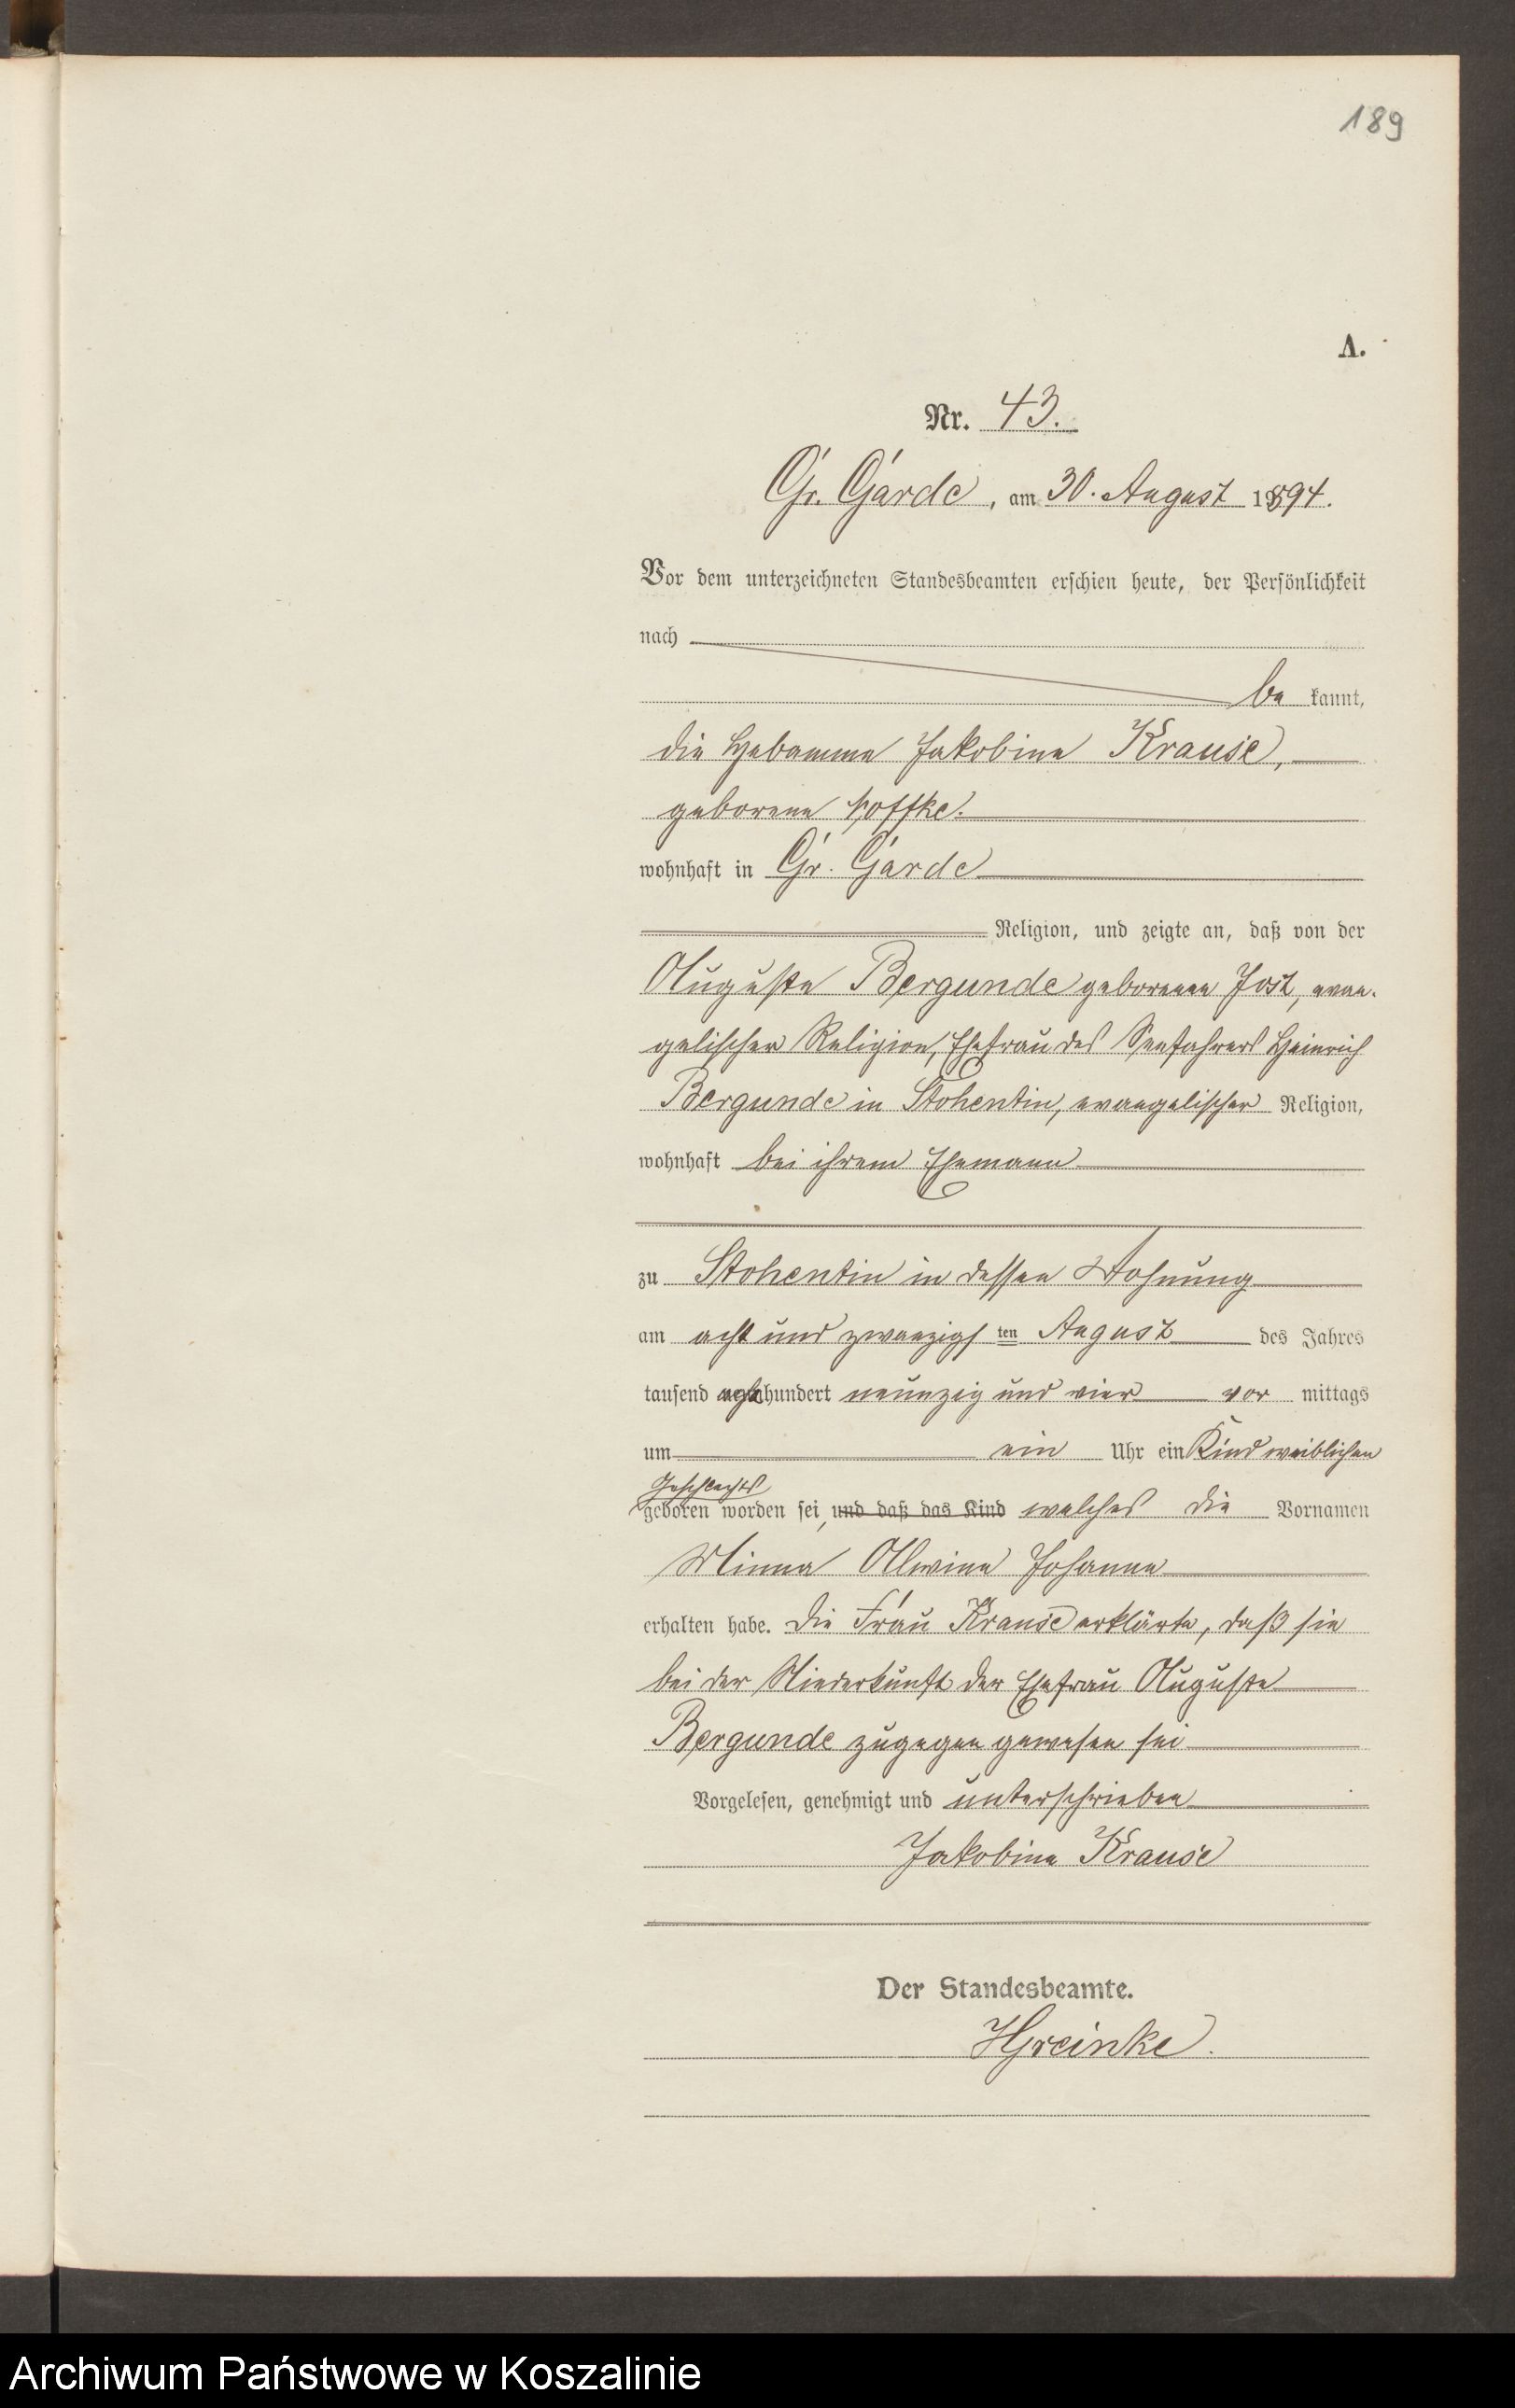 189
A.
Nr. 43.
Gr. Garde, am 30. August 1894.
Vor dem unterzeichneten Standesbeamten erschien heute, der Persönlichkeit
nach
be kannt,
die Hebamme Jakobine Krause,
geborene
wohnhaft in Gr. Garde
Religion, und zeigte an, daß von der
Auguste Bergunde geborenen Jost, evan-
gelischer Religion, Ehefrau des Seefahrers Heinrich
Bergunde in Stohentin, evangelischer Religion,
wohnhaft bei ihrem Ehemann
zu Stohentin in dessen Wohnung
am acht und zwanzigs ten August des Jahres
tausend acht hundert neunzig und vier vor mittags
um ein Uhr ein Kind weiblichen
Geschlechts
geboren worden sei, und daß das Kind welches die Vornamen
Minna Alwine Johanne
erhalten habe. Die Frau Krause erklärte, daß sie
bei der Niederkunft der Ehefrau Auguste
Bergunde zugegen gewesen sei
Vorgelesen, genehmigt und unterschrieben
Jakobine Krause
Der Standesbeamte.
Archiwum Państwowe w Koszalinie